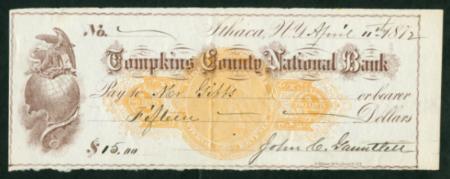 No. Ithaca, N.Y. April 11th 1872
Tompkins County National Bank
Pay to or bearer
Fifteen Dollars
$15.00 John C. Gauntlett